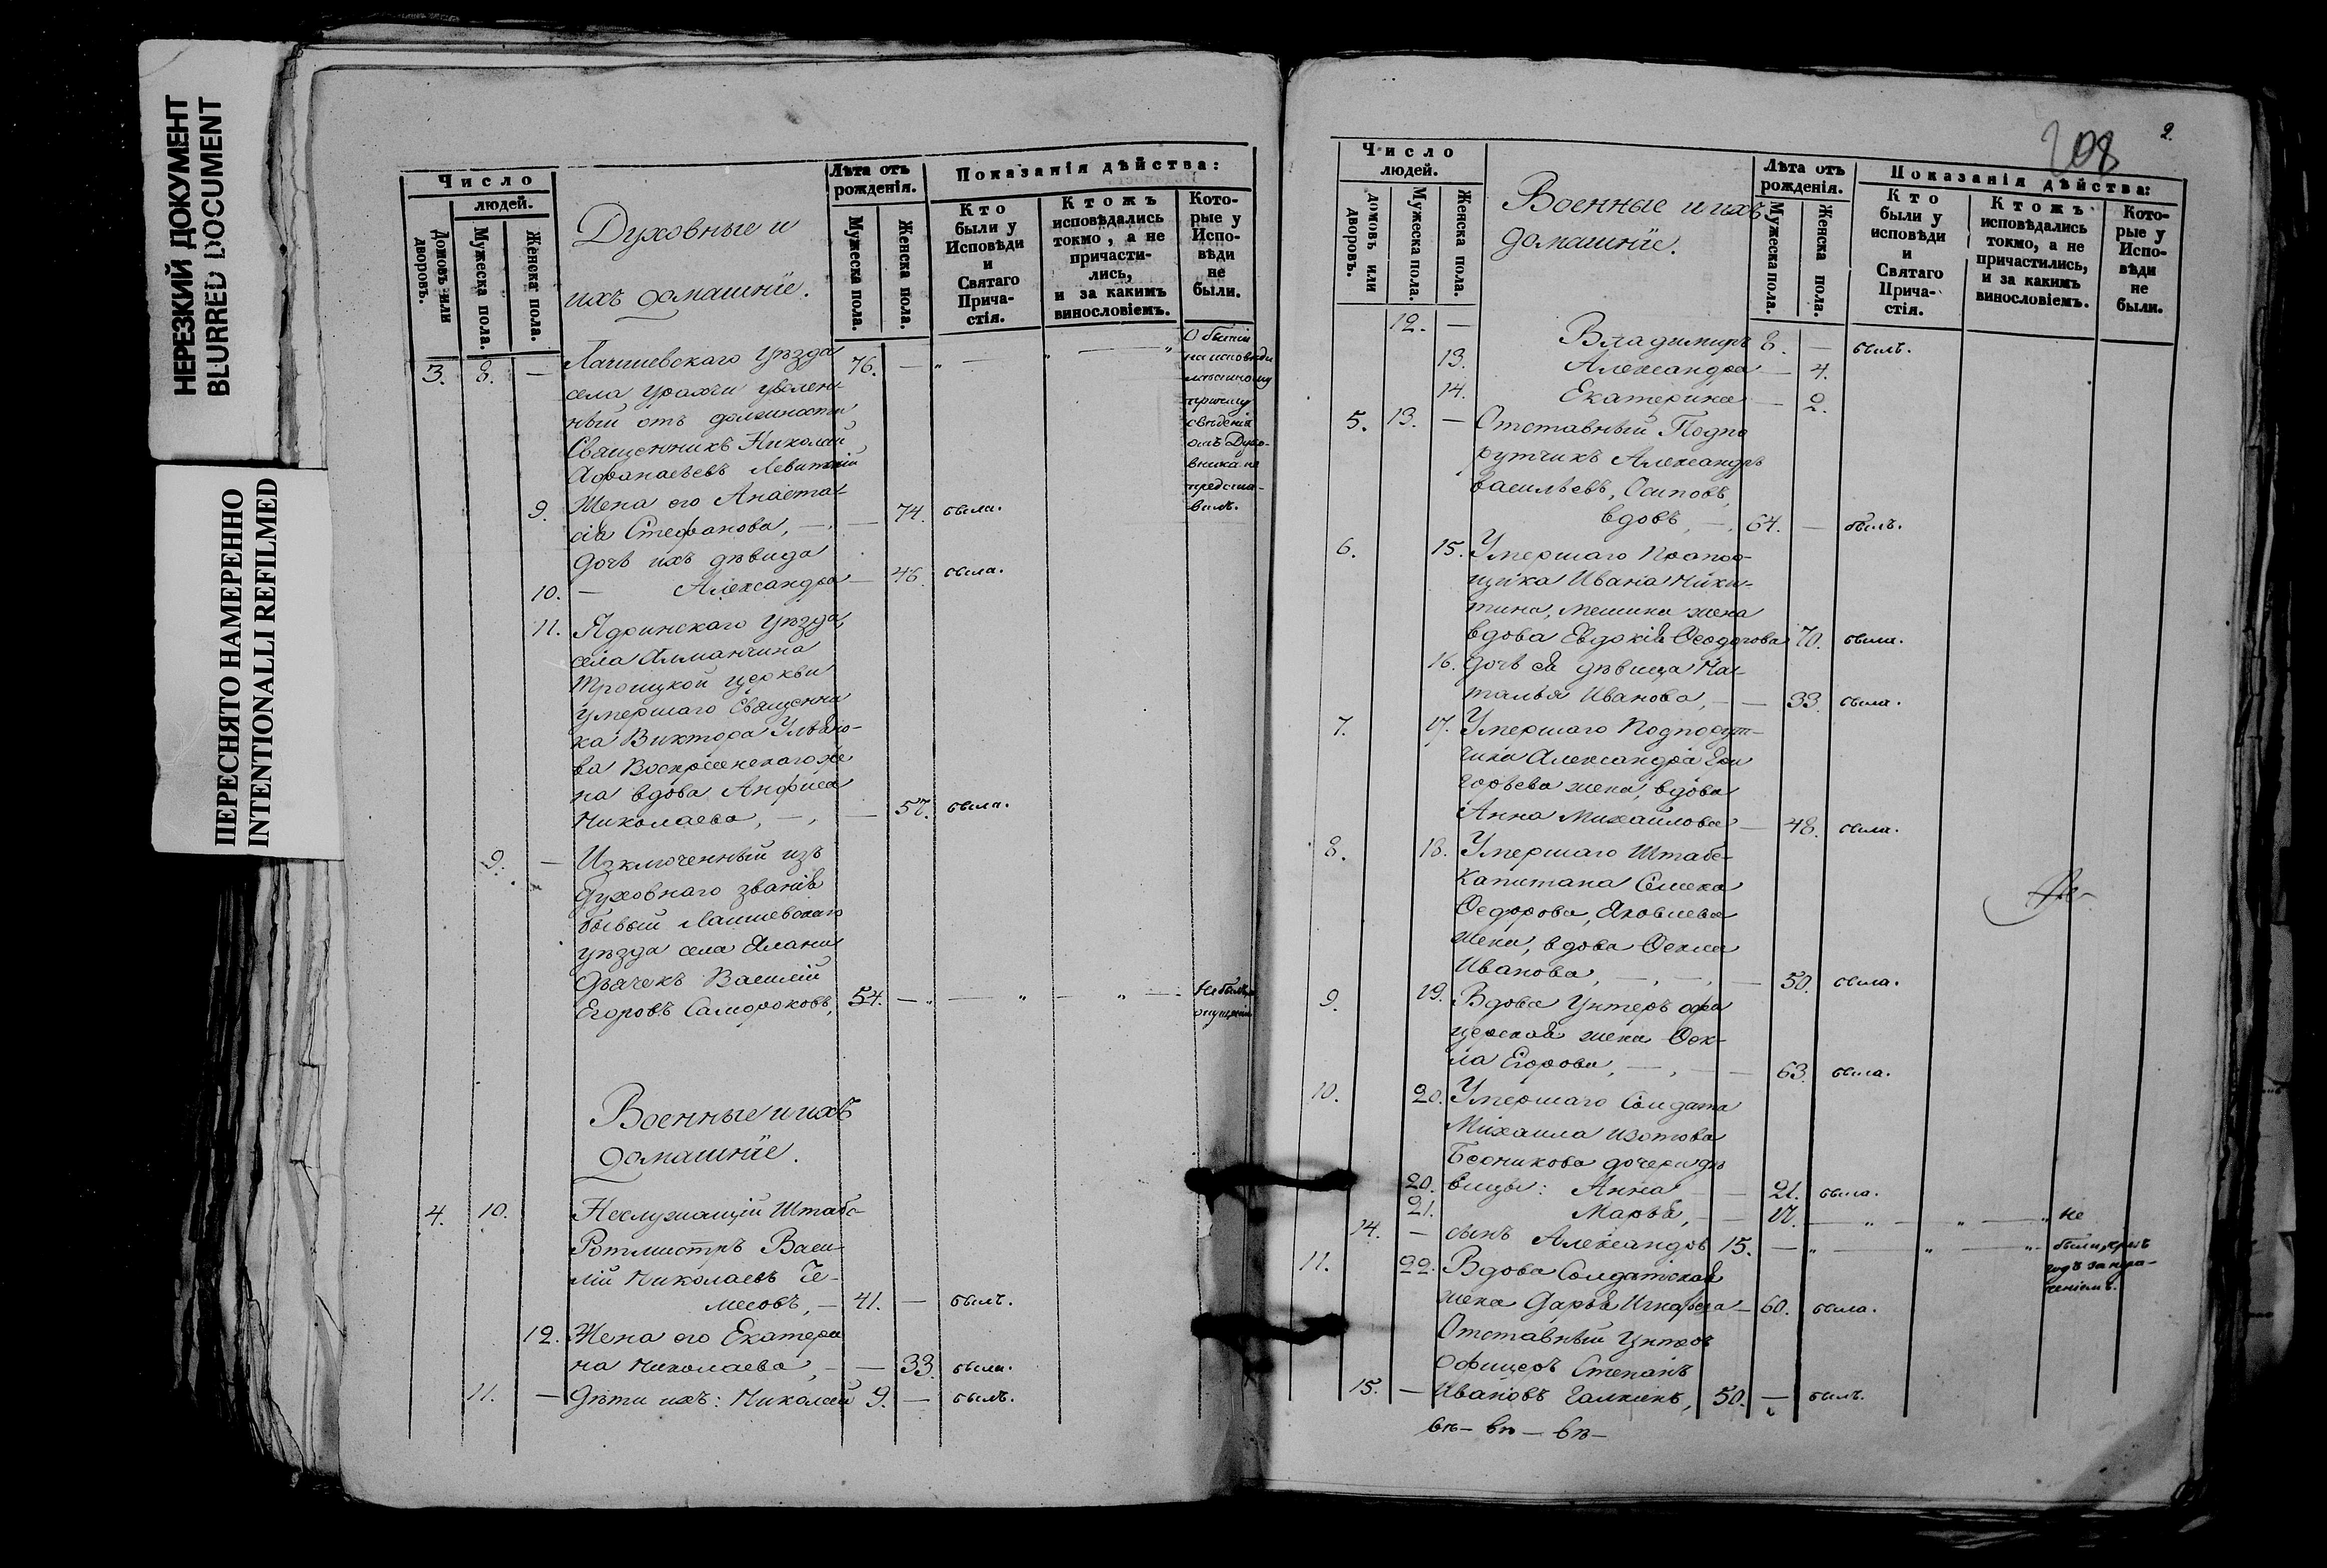 НЕРЕЗКИЙ ДОКУМЕНТ
BLURRED DOCUMENT
ПЕРЕСНЯТО НАМЕРЕННО
INTENTIONALLI REFILMED
Число
людей.
Домовъ или дворовъ.
Мужеска пола.
Женска пола.
Духовные и
ихъ домашнiе.
Лѣта отъ рожденiя.
Мужеска пола.
Женска пола.
Показанiя дѣйства:
Кто были у Исповѣди и Святаго Прича-стiя.
Ктожъ исповѣдались токмо, а не причасти-лись, и за какимъ винословiемъ.
Кото-рые у Испо-вѣди не были.
3. 8. — Лаишевскаго уѣзда 76. —
села Урахчи уволен-
ный отъ должности
Священникъ Николай
Афанасьевъ Левитскiй
О бытiи
на исповѣди
причту
сведенiя
отъ Духо-
вника не
предста-
вилъ.
9. Жена его Анаста-
сiя Стефанова, — 74. была.
дочь ихъ дѣвица
10. — Александра — 46. была.
11. Ядринскаго уѣзда,
села Алманчина
Троицкой церкви
умершаго Священни
ка Виктора Ульяно-
ва Воскресенскаго же
на вдова Анфиса
Николаева, — 57. была.
9. — Изключенный изъ
Духовнаго званiя
бывый Лаишевскаго
уѣзда села Алани
Дьячекъ Василiй
Егоровъ Самороковъ, 54. — Не былъ
Военные и ихъ
домашнiе.
4. 10. Неслужащiй Штабс-
Ротмистръ Васи-
лiй Николаевъ Че-
месовъ, — 41. — былъ.
12. Жена его Екатери
на Николаева, — 33. была.
11. — Дѣти ихъ: Николай 9. — былъ.
208
2.
Число
людей.
домовъ или дворовъ.
Мужеска пола.
Женска пола.
Военные и ихъ
домашнiе.
Лѣта отъ рожденiя.
Мужеска пола.
Женска пола.
Показанiя дѣйства:
Кто были у исповѣди и Святаго Прича-стiя.
Ктожъ исповѣдались токмо, а не причастились, и за какимъ винословiемъ.
Кото-рые у Испо-вѣди не были.
12. — Владимiръ 8. — былъ.
13. Александра — 4.
14. Екатерина — 2.
5. 13. — Отставный Подпо
рутчикъ Александръ
Васильевъ, Осиповъ,
вдовъ, — 64. — былъ.
6. 15. Умершаго Прапор-
щика Ивана Ники-
тина, жена
вдова Евдокiя Ѳеодорова 70. была.
16. дочь ея дѣвица На-
талья Иванова, — 33. была.
7. 17. Умершаго Подпорут-
чика Александра Гри
горьева жена, вдова
Анна Михайлова — 48. была.
8. 18. Умершаго Штабс-
Капитана Семена
Ѳедорова, Яковлева
жена, вдова Ѳекла
Иванова, — 50. была.
9. 19. Вдова Унтеръ офи
церская жена Ѳек-
ла Егорова, — 63. была.
10. 20. Умершаго Солдата
Михаила Изотова
дочери дѣ
20. вицы: Анна — 21. была.
21. Марья, — 17. — не
14. — сынъ Александръ 15. — были,
11. 22. Вдова Солдатская
жена Дарья Игнатьева — 60. была.
Отставный Унтеръ
офицеръ Степанъ
15. — Ивановъ Галкинъ, 50. — былъ.